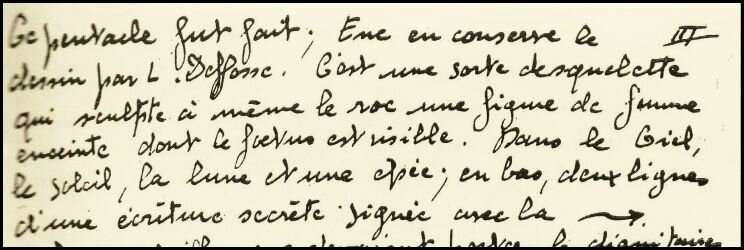 Ce pentacle fut fait ; Eve en conserve le III
dessin par L. Deffosse. C'est une sorte desquelette
qui sculpte à même le roc une figure de femme
enceinte dont le fœtus est visible. Dans le Ciel,
le soleil, la lune et une épée ; en bas, deux lignes
d'une écriture secrète signée avec la →.
le dignitaires